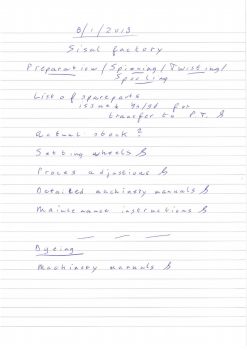 8/1/2013
Sisal factory
Preparation / Spinning / Twisting /
Spooling
List of spareparts
issued for
transfer to P.T.
Actual stock ?
Setting wheels
Proces adjustions
Detailed machinery manuals
Maintenance instructions
Dyeing
Machinery manuals